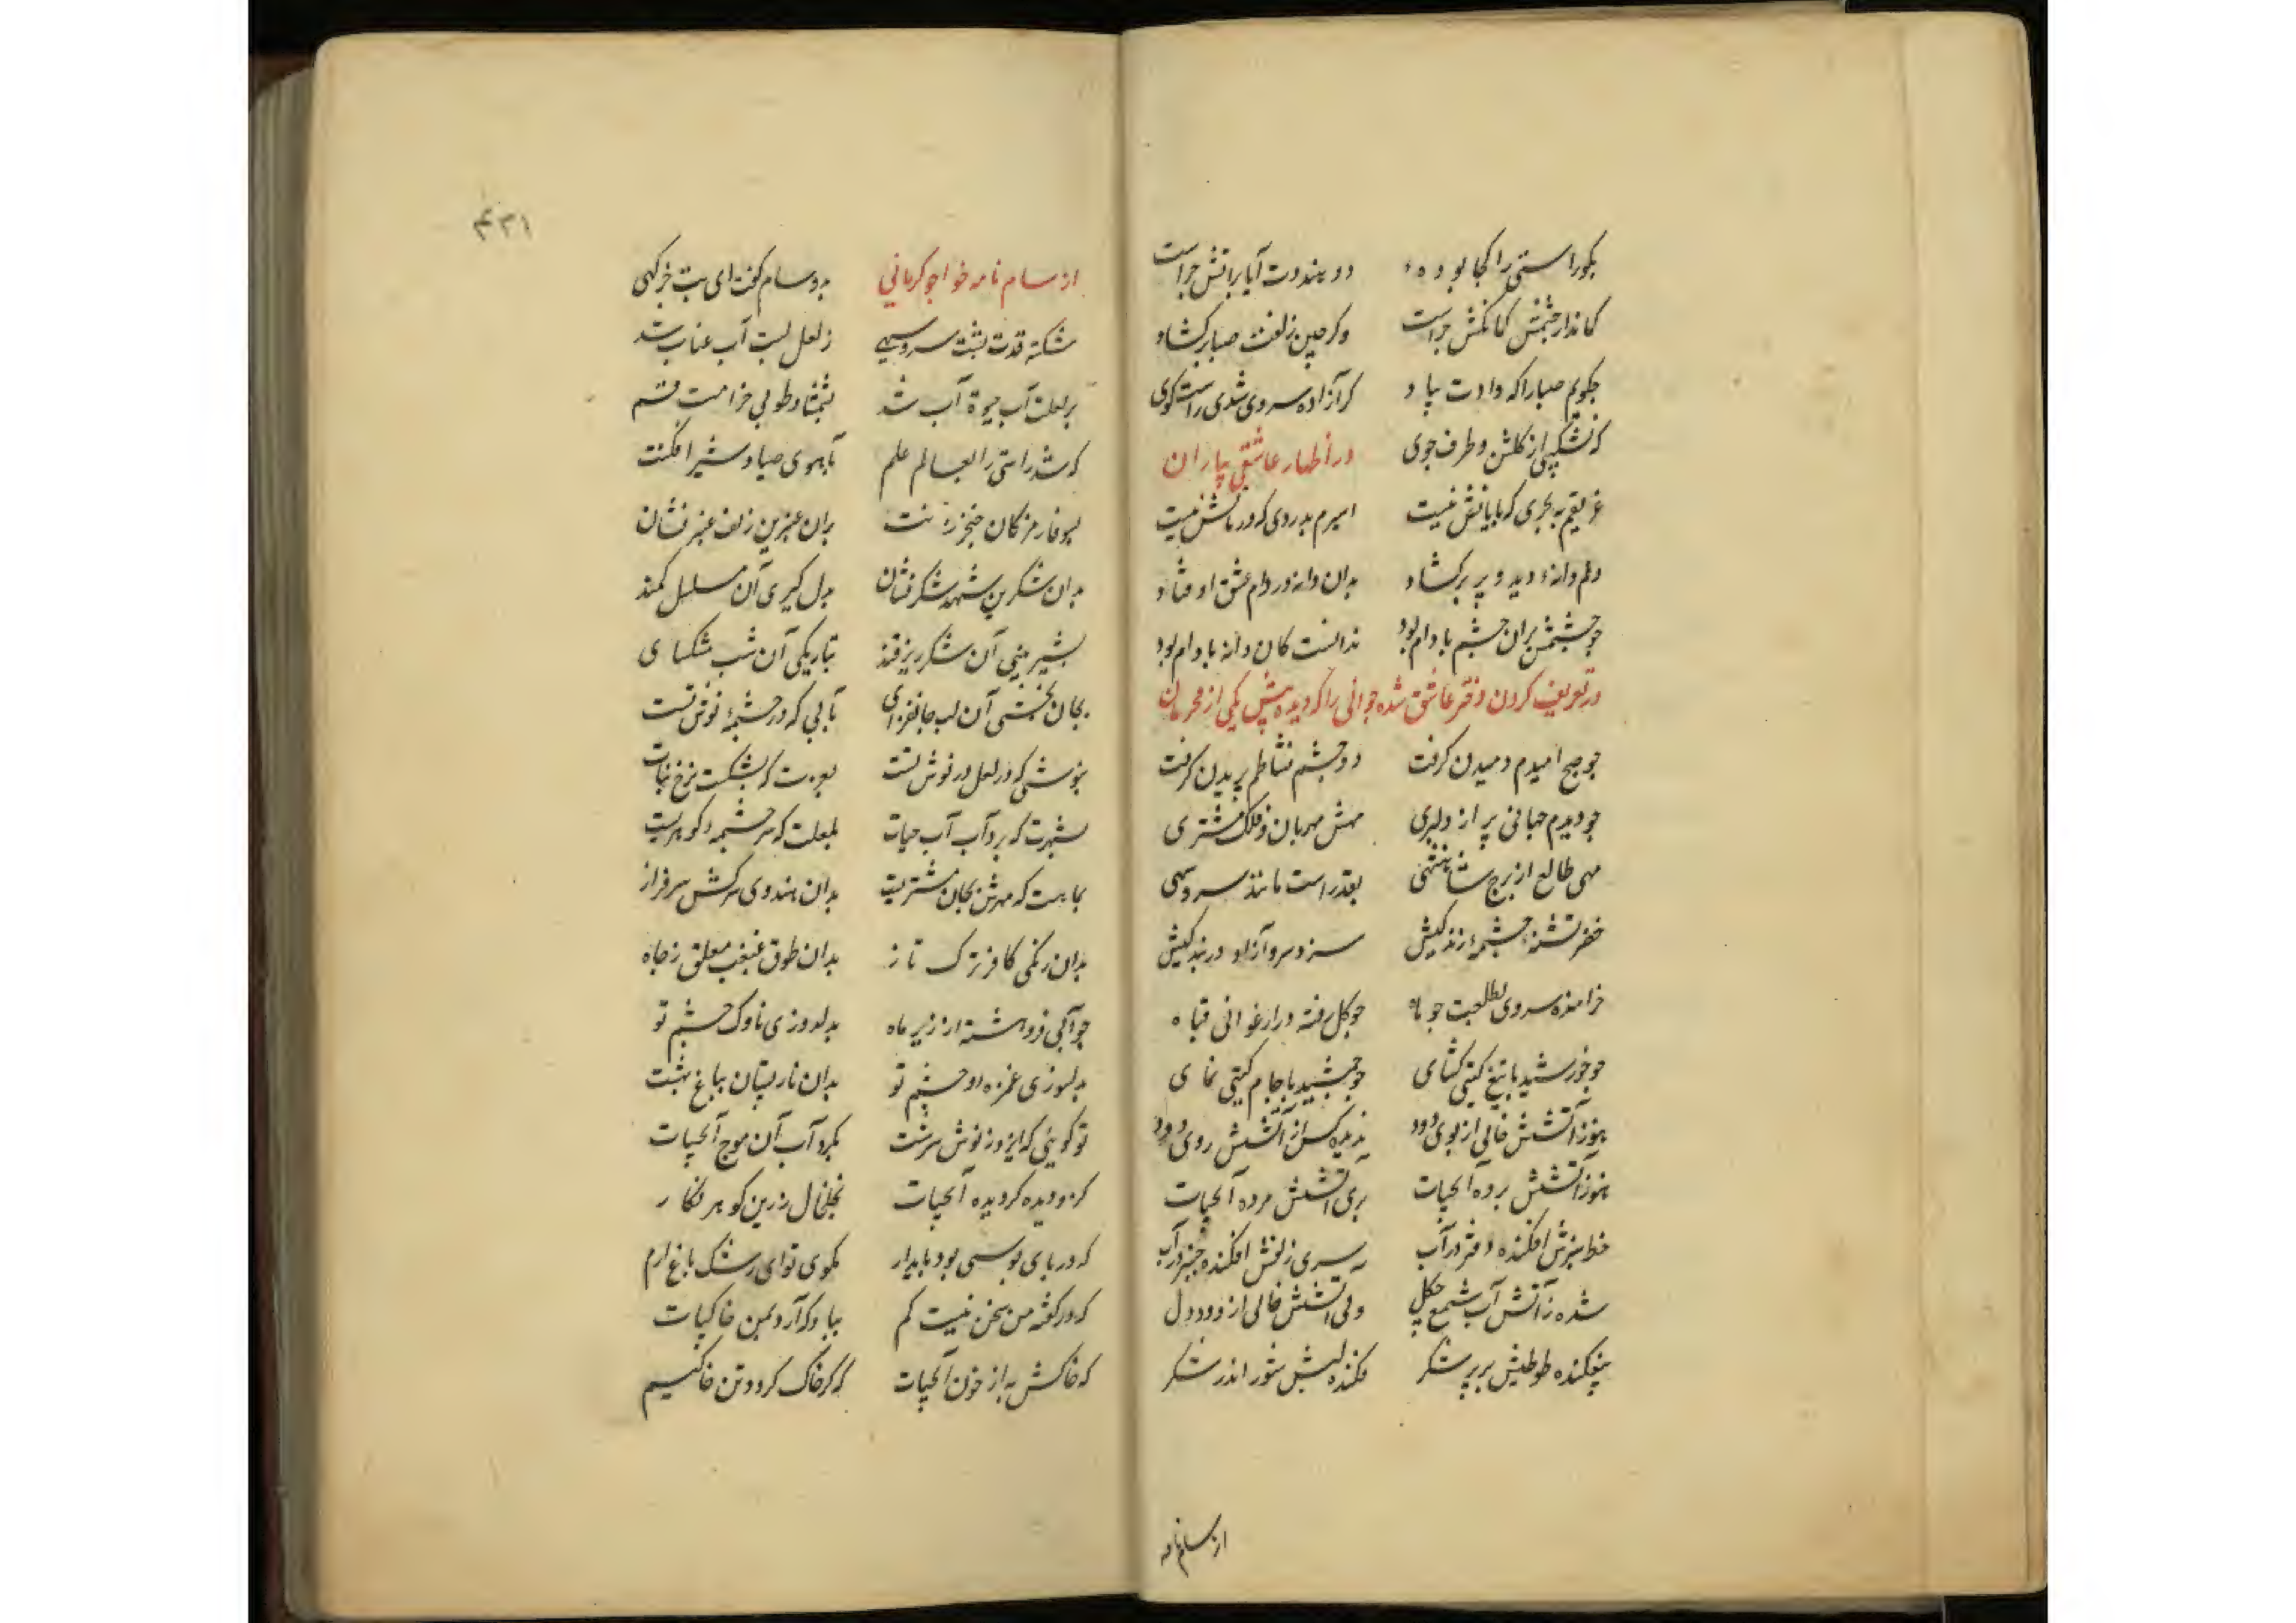 بگو راستی را کجا بوده دو هندوت آیا بر آتش چراست
کماندار چشمش کمانکش چراست وکر چین زلفت صبا برکشاد
چگویم صبا را که دادت بباد کر آزاده سروی شدی راست کوی
که نشکیبی از کلشن و طرف جوی در اظهار عاشقی یاران
غریقم به بحری که پایانش نیست اسیرم بدردی که درمانش نیست
دلم دانه دید و پر برکشاد بدان دانه در دام عشق اوفتاد
چو چشمش بران چشم بادام بود ندانست کان دانه بادام بود
در تعریف کردن دختر عاشق شده جوانی را که دیده پیش یکی از محرمان
چو صبح امیدم دمیدن کرفت دو چشم نشاطم پریدن کرفت
چو دیدم جهانی پر از دلبری مهش مهربان و فلک مشتری
مهی طالع از برج شاهنشهی بقد راست مانند سرو سهی
خضر تشنه چشمه زندکیش سزد سرو آزاد در بندکیش
خرامنده سروی بطلعت چو ماه چو کل رفته در ارغوانی قباه
چو خورشید با تیغ کیتی کشای چو جمشید با جام کیتی نمای
هنوز آتشش خالی از بوی دود ندیده کس از آتشش روی دود
هنوز آتشش برده آبحیات بری آتشش مرده آبحیات
خط سبزش افکنده دفتر در آب سری زلفش افکنده چنبر در آب
شده ز آتشش آب شمع چکل ولی آتشش خالی از دود دل
بیفکنده طوطیش پر بر شکر فکنده لبش شور اندر شکر
از سام نامه
۴۳۱
از سام نامه خواجو کرمانی بدو سام کفت ای بت خرکهی
شکسته قدت پشت سرو سهی ز لعل لبت آب عناب شد
بر لعلت آب حیوة آب شد بشمشاد طوبی خرامت قسم
که شد راستی را بعالم علم بآهوی صیاد شیر افکنت
بسوفار مژکان خنجر زنت بدان عنبرین زلف عنبر فشان
بدان شکرین شهد شکرفشان بدل کیری آن مسلسل کمند
بشیرینی آن شکرریز قند بتاریکی آن شب مشکسای
بجان بخشی آن لب جانفزای بآبی که در چشمه نوش تست
بنوشی که در لعل در نوش تست بعهدت که بشکست نرخ نبات
بشهرت که برد آب آب حیات بلعلت که سرچشمه کوهریست
بماهت که مهرش بجان مشتریست بدان هندوی سرکش سرفراز
بدان زنکی کافر ترک تاز بدان طوق غبغب معلق ز چاه
چو آبی فروهشته از زیر ماه بدلدوزی ناوک چشم تو
بدلسوزی غمزه دو چشم تو بدان نار پستان بباغ بهشت
تو کویی که ایزد ز نوش سرشت بکرد آب آن موج آبحیات
کزو دیده کردیده آبحیات بخلخال زرین کوهر نکار
که در پای بوسی بود پایدار بکوی تو ای رشک باغ ارم
که در کفته من سخن نیست کم بباد که آرد بمن خاکپات
که خاکش به از خون آبحیات که کر خاک کردد تن خاکیم